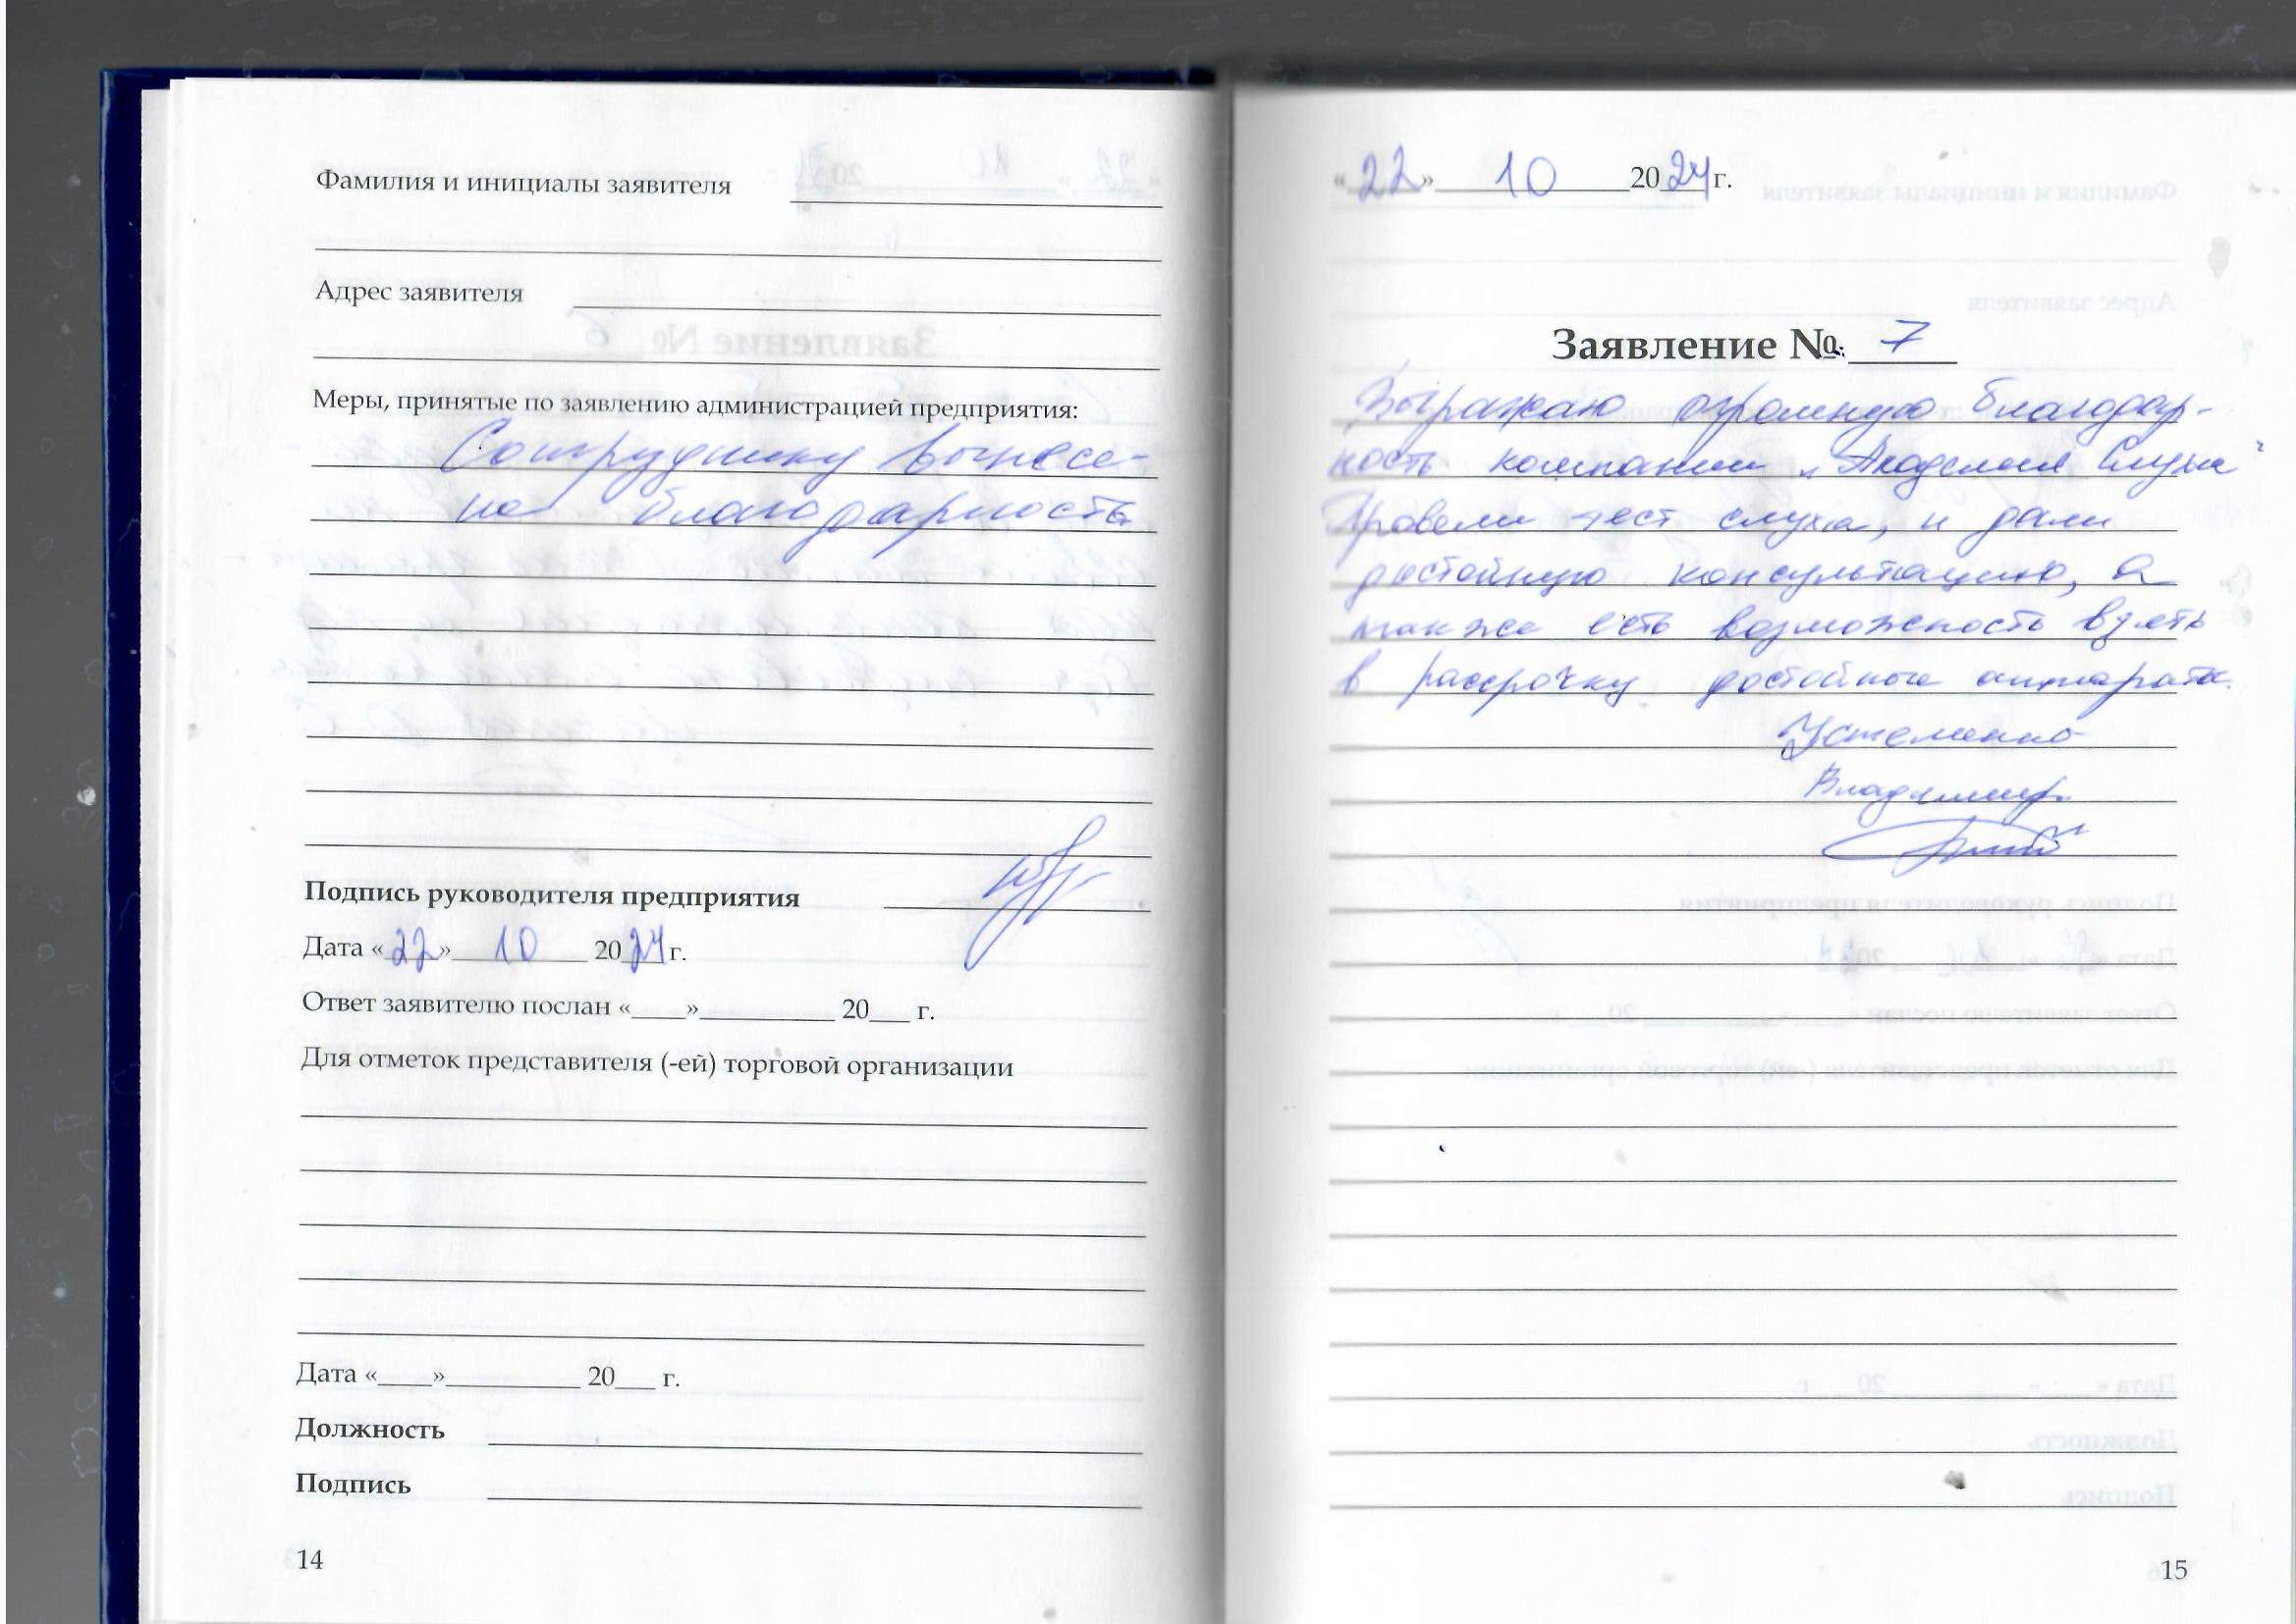 Фамилия и инициалы заявителя
Адрес заявителя
Меры, принятые по заявлению администрацией предприятия:
Сотруднику вынесе-
на благодарность
Подпись руководителя предприятия
Дата «22» 10 2024 г.
Ответ заявителю послан «____»__________ 20___ г.
Для отметок представителя (-ей) торговой организации
Дата «____»__________ 20___ г.
Должность
Подпись
14
«22» 10 2024 г.
Заявление № 7
Выражаю огромную благодар-
ность компании „Академия Слуха"
Провели тест слуха, и дали
достойную консультацию, а
также есть возможность взять
в рассрочку достойные аппараты.
Устеменко
Владимир
15